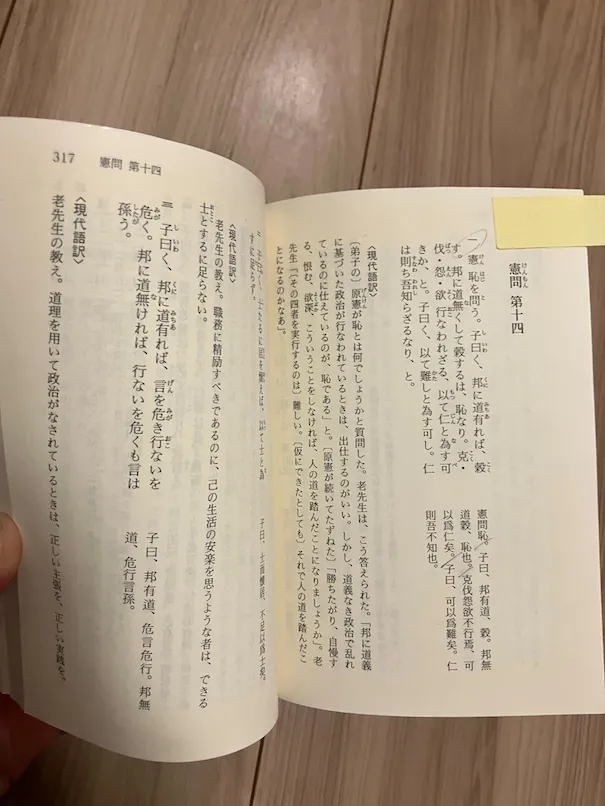 憲問 第十四
一 憲 恥を問う。子曰く、邦に道有れば、穀
す。邦に道無くして穀するは、恥なり。克・
伐・怨・欲 行なわれざる、以て仁と為す可
きか、と。子曰く、以て難しと為す可し。仁
は則ち吾知らざるなり、と。
憲問恥。子曰、邦有道、穀。邦無
道穀、恥也。克伐怨欲不行焉、可
以爲仁矣。子曰、可以爲難矣。仁
則吾不知也。
〈現代語訳〉
〔弟子の〕原憲が恥とは何でしょうかと質問した。老先生は、こう答えられた。「邦に道義
に基づいた政治が行なわれているときは、出仕するのがいい。しかし、道義なき政治で乱れ
ているのに仕えているのが、恥である」と。〔原憲が続いてたずねた〕「勝ちたがり、自慢す
る、恨む、欲深、こういうことをしなければ、人の道を踏んだことになりましょうか」。老
先生「〔その四者を実行するのは〕難しい。〔仮にできたとしても〕それで人の道を踏んだこ
とになるのかなあ」。
317 憲問 第十四
子曰、士而懷居、不足以爲士矣。
〈現代語訳〉
老先生の教え。職務に精励すべきであるのに、己の生活の安楽を思うような者は、できる
士とするに足らない。
三 子曰く、邦に道有れば、言を危き行ないを
危く。邦に道無ければ、行ないを危くも言は
孫う。
子曰、邦有道、危言危行。邦無
道、危行言孫。
〈現代語訳〉
老先生の教え。道理を用いて政治がなされているときは、正しい主張を、正しい実践を。